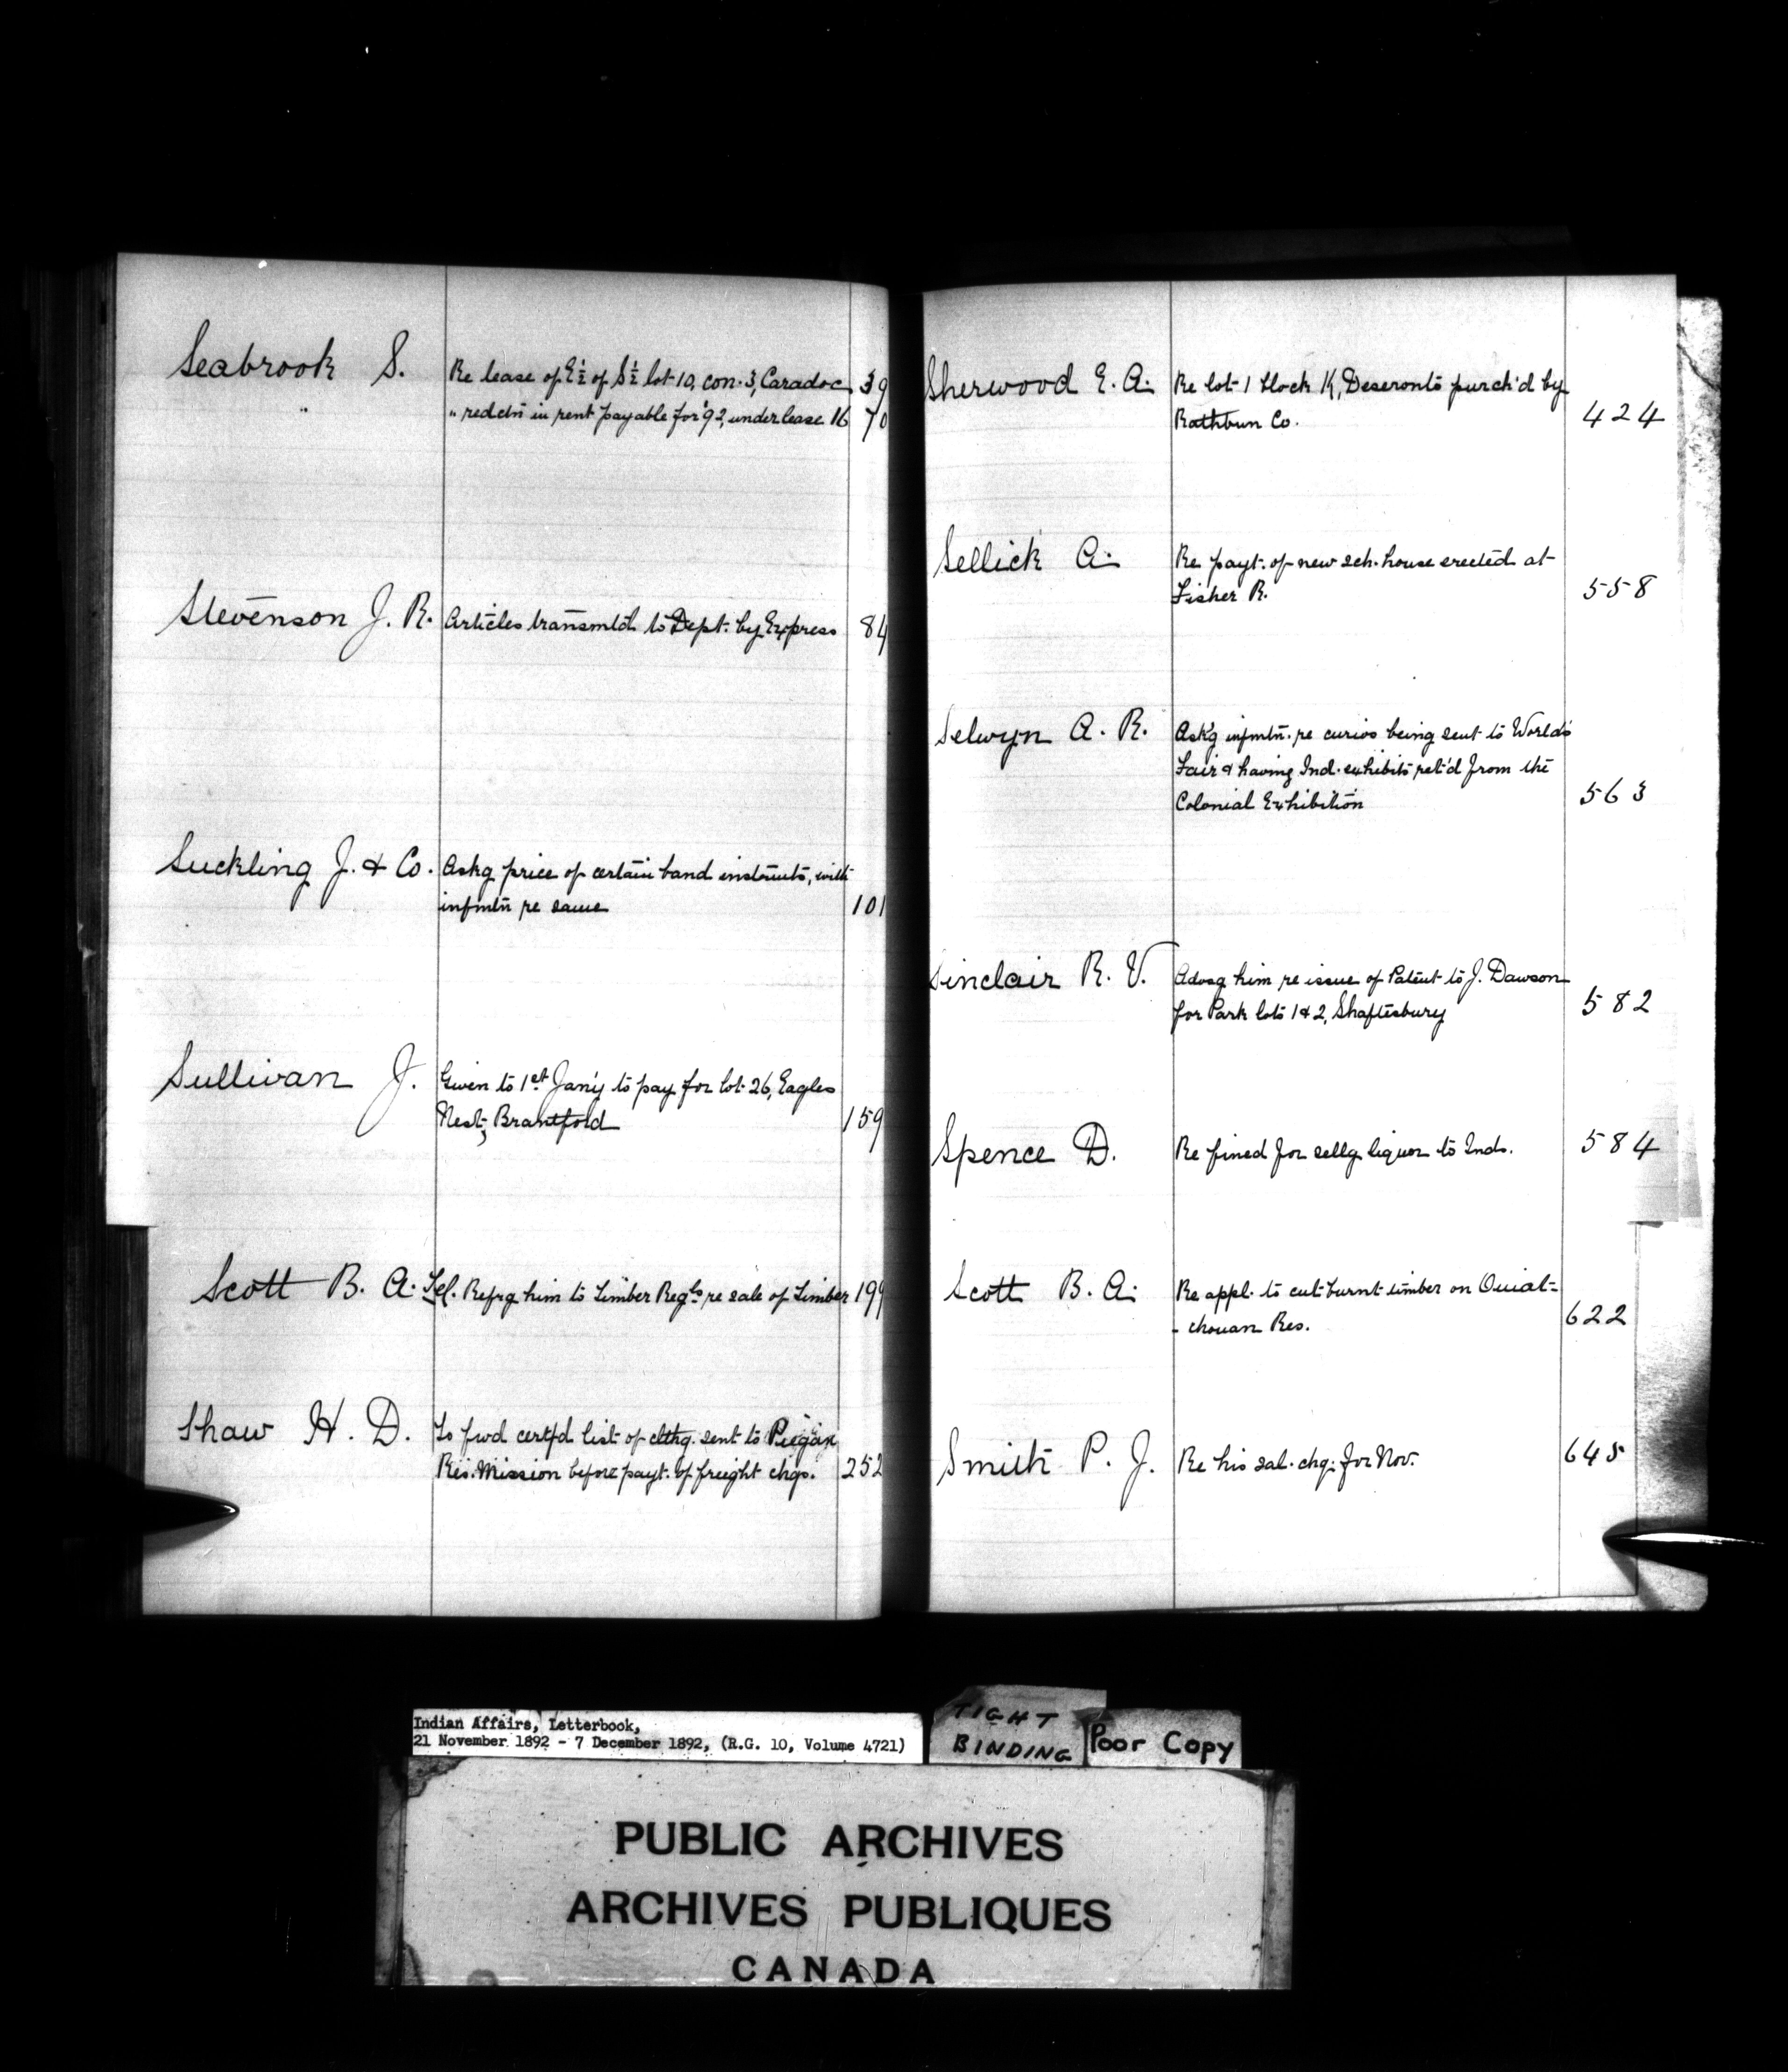 Seabrook S. Re lease of E½ of S½ lot 10, con. 3, Caradoc 39
" " redctn in rent payable for '92, under lease 16 70
Stevenson J. R. Articles transmtd to Dept. by Express 84
Suckling J. & Co. Askg price of certain band instmts, with
infmtn re same 101
Sullivan J. Given to 1st Jan'y to pay for lot 26, Eagles
Nest, Brantford 159
Scott B. A. Tel. Refrg him to Timber Regls re sale of Timber 199
Shaw H. D. To fwd certfd list of clthg. sent to Piegan
Res. Mission before payt. of freight chgs. 252
Sherwood E. A. Re lot 1 block K, Deseronto purch'd by
Rathbun Co. 424
Sellick A. Re payt. of new sch. house erected at
Fisher R. 558
Selwyn A. R. Ask'g infmtn. re curios being sent to World's
Fair & having Ind. exhibits ret'd from the
Colonial Exhibition 563
Sinclair R. V. Advsg him re issue of Patent to J. Dawson
for Park lots 1 & 2, Shaftesbury 582
Spence D. Re fined for sellg liquor to Inds. 584
Scott B. A. Re appl. to cut burnt timber on Ouiat-
- chouan Res. 622
Smith P. J. Re his sal. chq. for Nov. 645
Indian Affairs, Letterbook,
21 November 1892 - 7 December 1892, (R.G. 10, Volume 4721)
TIGHT
BINDING
Poor Copy
PUBLIC ARCHIVES
ARCHIVES PUBLIQUES
CANADA